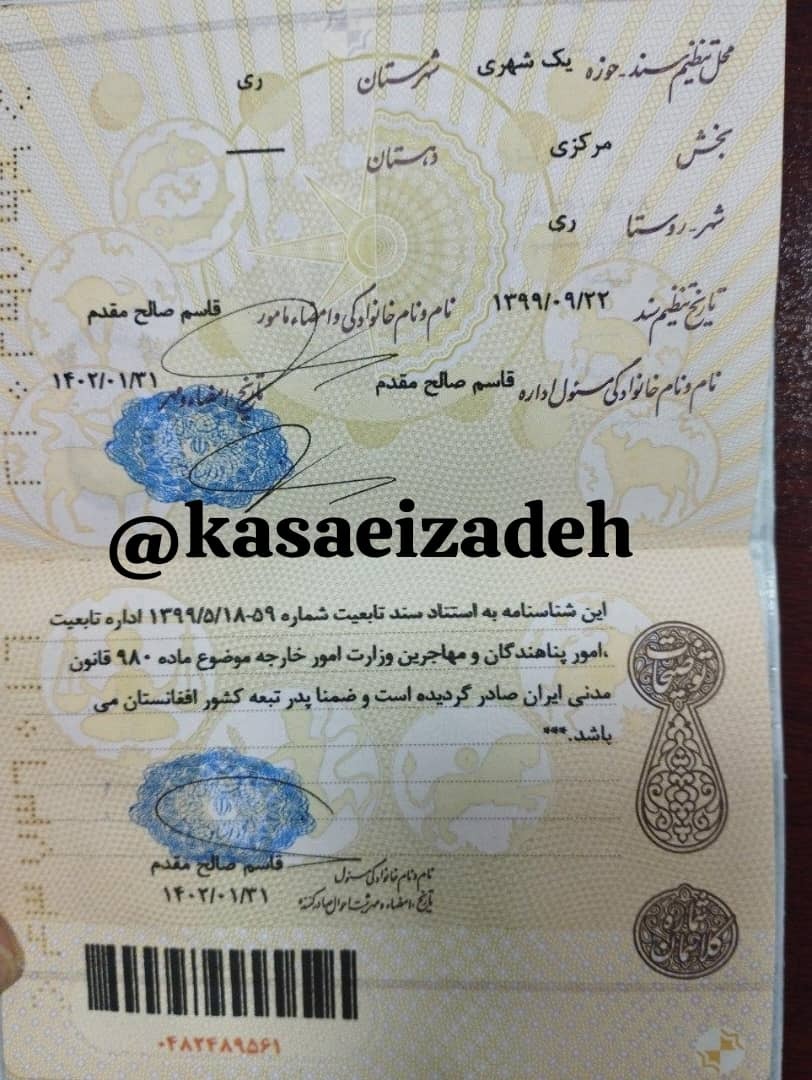 محل تنظیم سند-حوزه یک شهری شهرستان ری
بخش مرکزی دهستان ——
شهر-روستا ری
تاریخ تنظیم سند ۱۳۹۹/۰۹/۲۲ نام و نام خانوادگی و امضاء مامور قاسم صالح مقدم
نام و نام خانوادگی مسئول اداره قاسم صالح مقدم تاریخ، امضاء و مهر ۱۴۰۲/۰۱/۳۱
@kasaeizadeh
توضیحات
این شناسنامه به استناد سند تابعیت شماره ۵۹-۱۳۹۹/۵/۱۸ اداره تابعیت
،امور پناهندگان و مهاجرین وزارت امور خارجه موضوع ماده ۹۸۰ قانون
مدنی ایران صادر گردیده است و ضمنا پدر تبعه کشور افغانستان می
باشد.***
نام و نام خانوادگی مسئول قاسم صالح مقدم
تاریخ، امضاء و مهر ثبت احوال صادر کننده ۱۴۰۲/۰۱/۳۱
شماره کلاسمان
۰۴۸۲۴۸۹۵۶۱